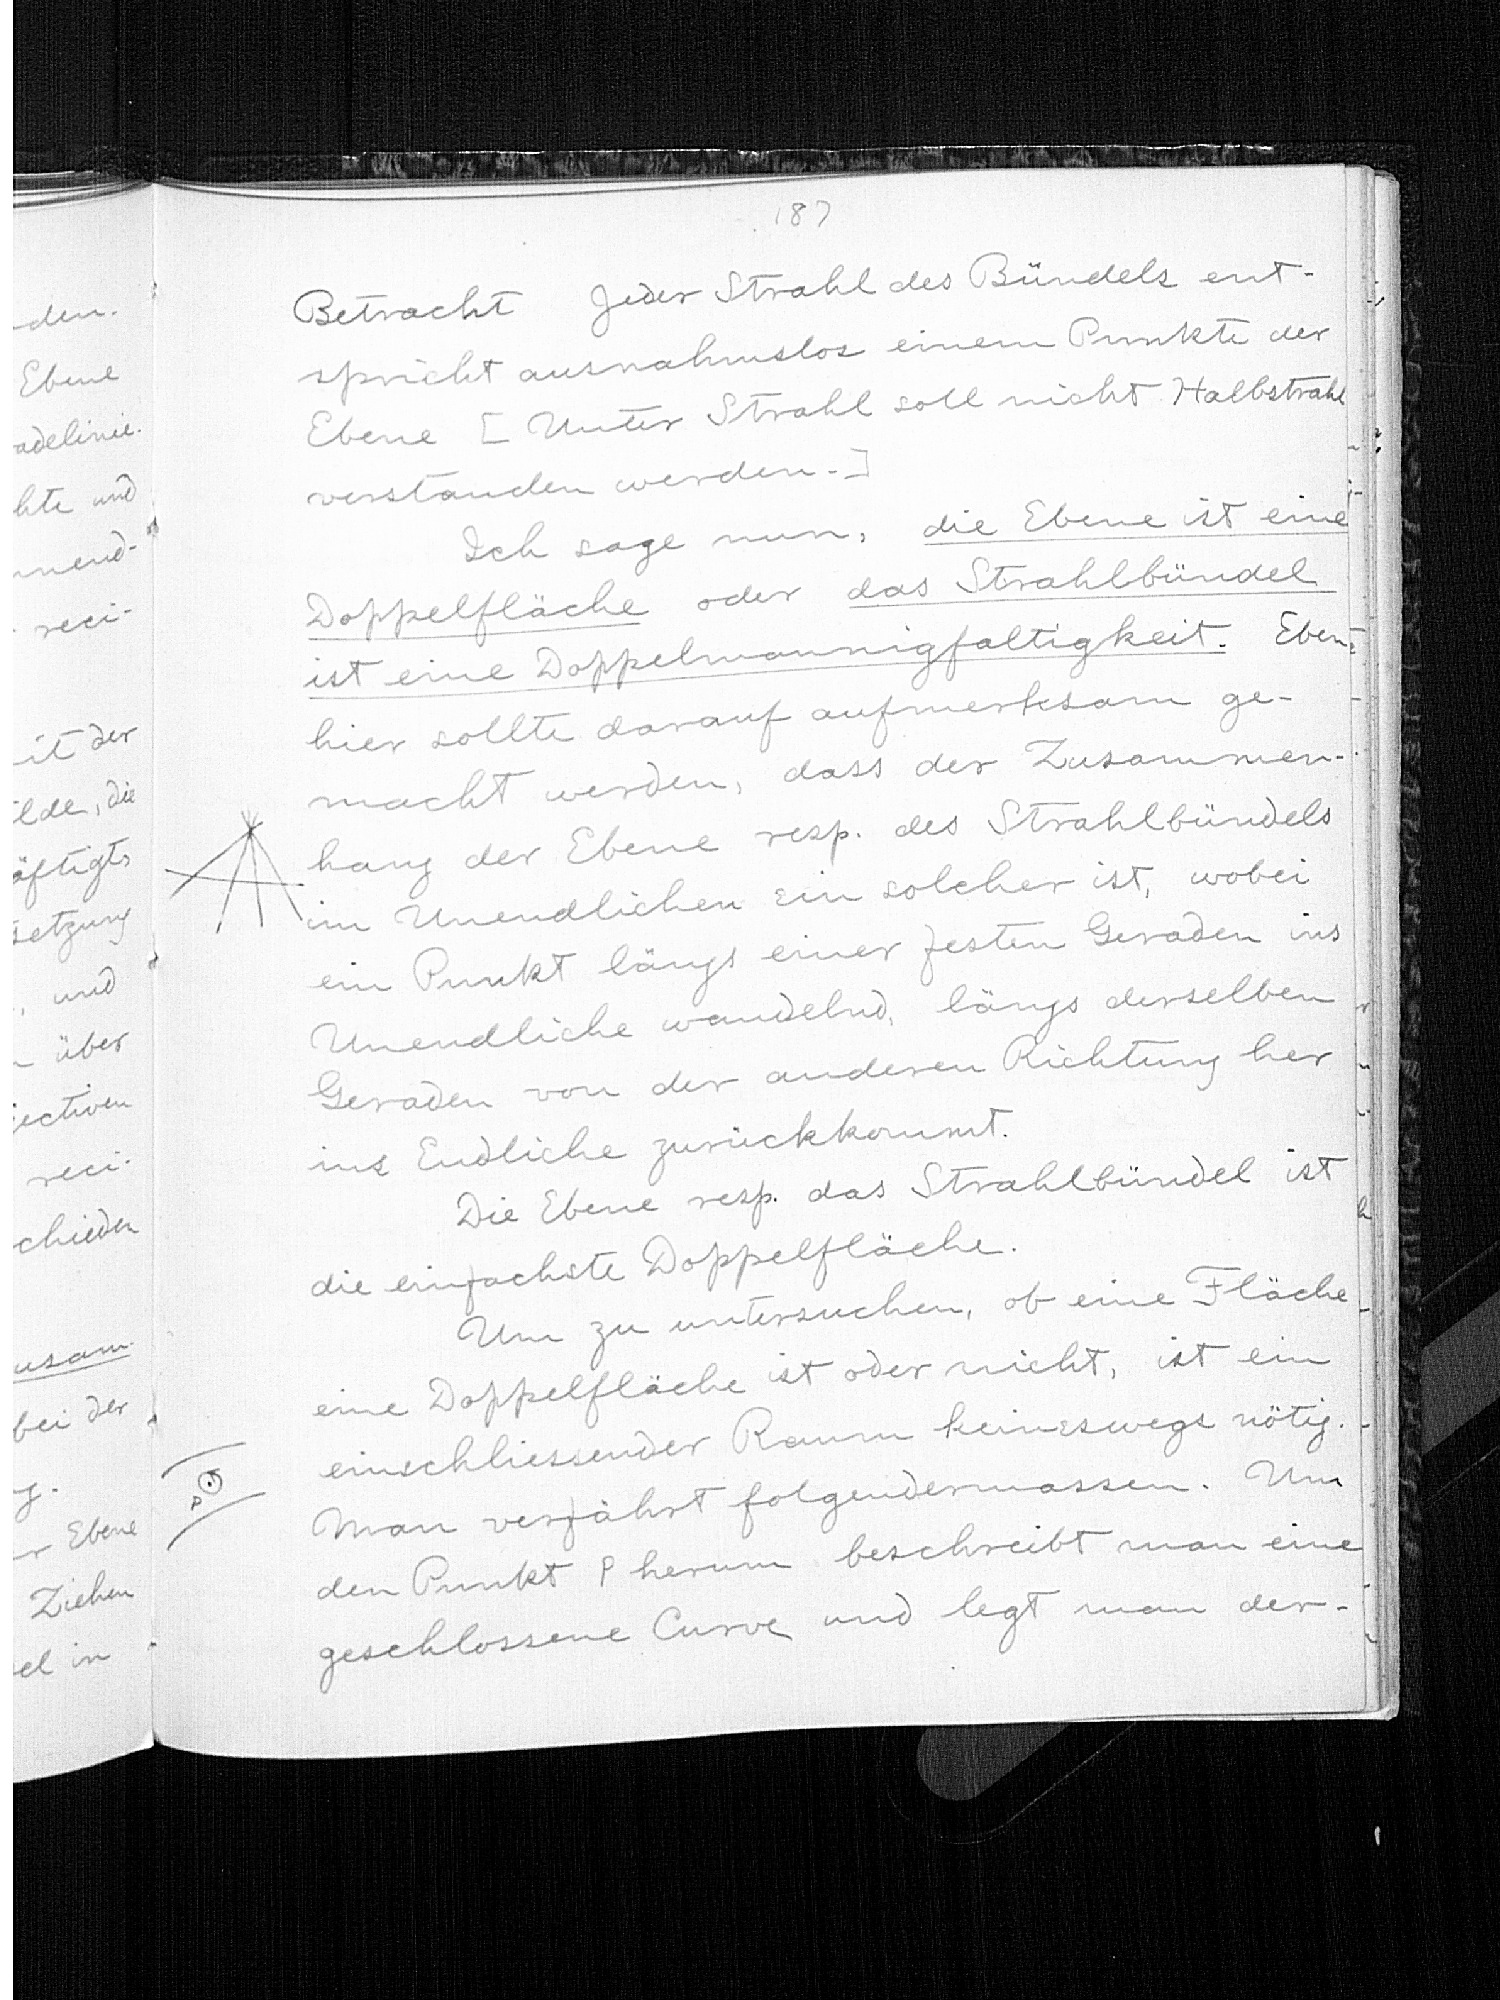 den.
Ebene
adelinie.
hte und
mend-
reci-
it der
lde, die
äftigt,
setzung
, und
über
jectiven
reci-
chieden
usam-
bei der
g.
r Ebene
Ziehen
el in
187
Betracht Jeder Strahl des Bündels ent-
spricht ausnahmslos einem Punkte der
Ebene [Unter Strahl soll nicht Halbstrahl
verstanden werden.]
Ich sage nun, die Ebene ist eine
Doppelfläche oder das Strahlbündel
ist eine Doppelmannigfaltigkeit. Eben
hier sollte darauf aufmerksam ge-
macht werden, dass der Zusammen-
hang der Ebene resp. des Strahlbündels
im Unendlichen ein solcher ist, wobei
ein Punkt längs einer festen Geraden ins
Unendliche wandelnd, längs derselben
Geraden von der anderen Richtung her
ins Endliche zurückkommt.
Die Ebene resp. das Strahlbündel ist
die einfachste Doppelfläche.
Um zu untersuchen, ob eine Fläche
eine Doppelfläche ist oder nicht, ist ein
einschliessender Raum keineswegs nötig.
P
Man verfährt folgendermassen. Um
den Punkt P herum beschreibt man eine
geschlossene Curve und legt man der-